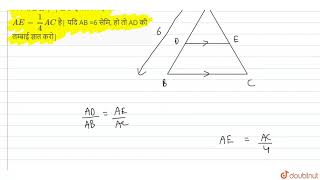 AE = 1/4 AC है| यदि AB =6 सेमि, हो तो AD की
लम्बाई ज्ञात करो|
6
D
E
B
C
AD/AB = AE/AC
AE = AC/4
doubtnut